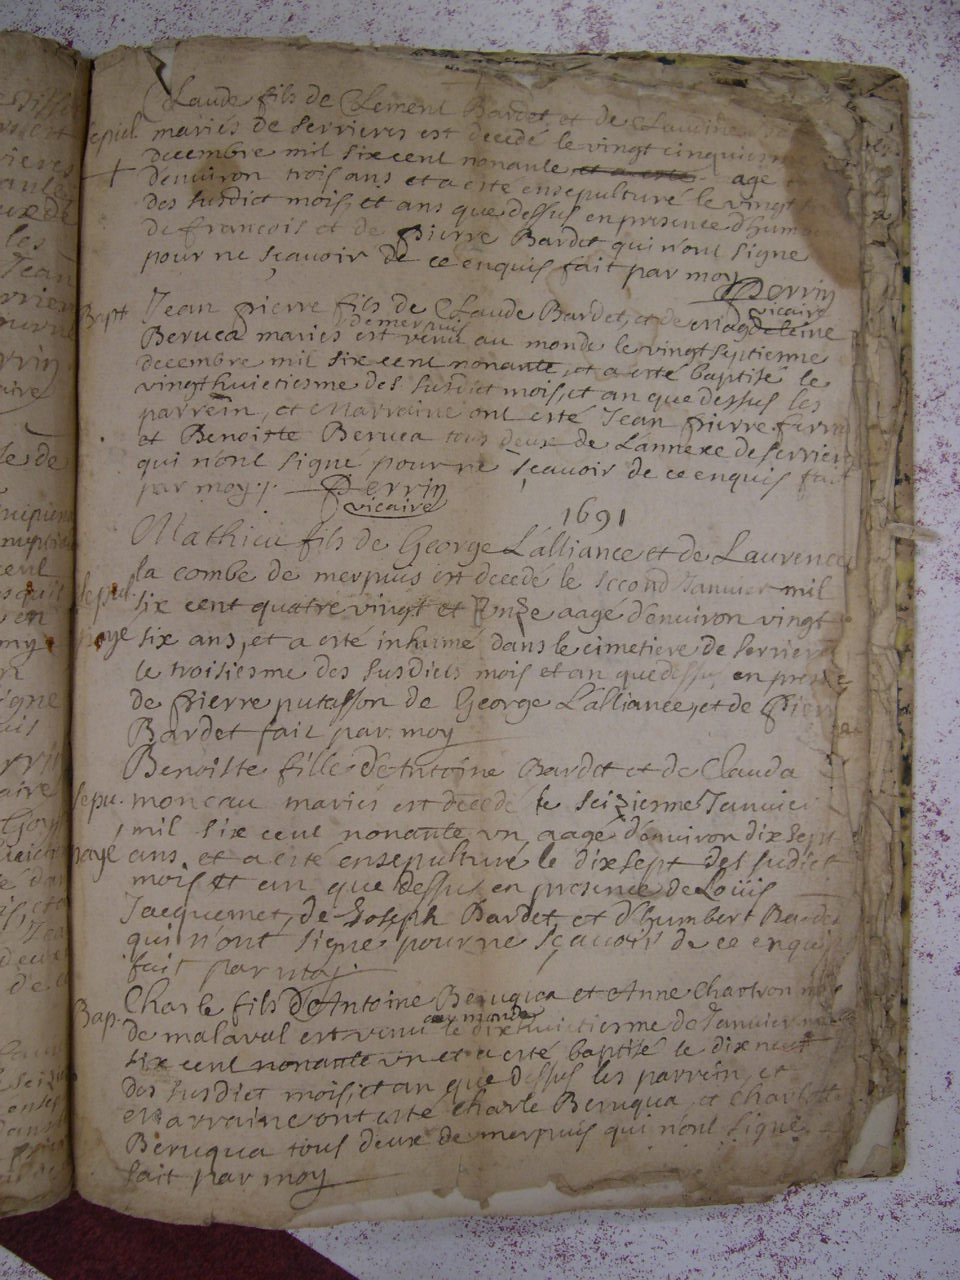 Claude fils de Clement Bardet et de Claudine
sepul. mariés de serrieres est decedé le vingt cinquiesme
decembre mil six cent nonante et a esté age
denviron trois ans et a esté ensepulturé le vingt
des susdict mois, et ans que dessus en presence d'humbert
de francois et de Pierre Bardet qui n'ont signe
pour ne sçavoir de ce enquis fait par moy
Perrin
vicaire
Bapt Jean pierre fils de Claude Bardet, et de Magdeleine
Beruca mariés de merpuis est venu au monde le vingt septienme
decembre mil six cent nonante, et a esté baptisé le
vingt huictiesme des susdict mois, et an que dessus les
parrein, et Marraine ont esté Jean pierre
et Benoiste Beruca tous deux de Lannexe de serrieres
qui n'ont signé pour ne sçavoir de ce enquis fait
par moy. Perrin
vicaire
1691
Mathieu fils de George L'alliance et de Laurence
la combe de merpuis est decedé le second Janvier mil
sepul. six cent quatre vingt et Unze aagé d'environ vingt
paye six ans, et a esté inhumé dans le cimetiere de serrieres
le troisiesme des susdicts mois et an que dessus, en presence
de Pierre putasson de George L'alliance, et de Pierre
Bardet fait par moy
Benoiste fille de Antoine Bardet et de Clauda
sepu. moncau mariés est decedé le seizienme Janvier
mil six cent nonante un aagé d'environ dix sept
paye ans, et a esté ensepulturé le dix sept des susdict
mois et an que dessus en presence de Loüis
Jacquemet, de Joseph Bardet, et d'humbert Bardet
qui n'ont signé pour ne sçavoir de ce enquis
fait par moy
Charle fils de Antoine Beruqua et Anne Charvon
Bap. de malaval est venu au monde le dix huictiesme de Janvier
six cent nonante un et a esté baptisé le dix neuf
des susdict mois, et an que dessus les parrein, et
Marraine ont esté Charle Beruqua, et Charlotte
Beruqua tous deux de merpuis qui n'ont signe
fait par moy